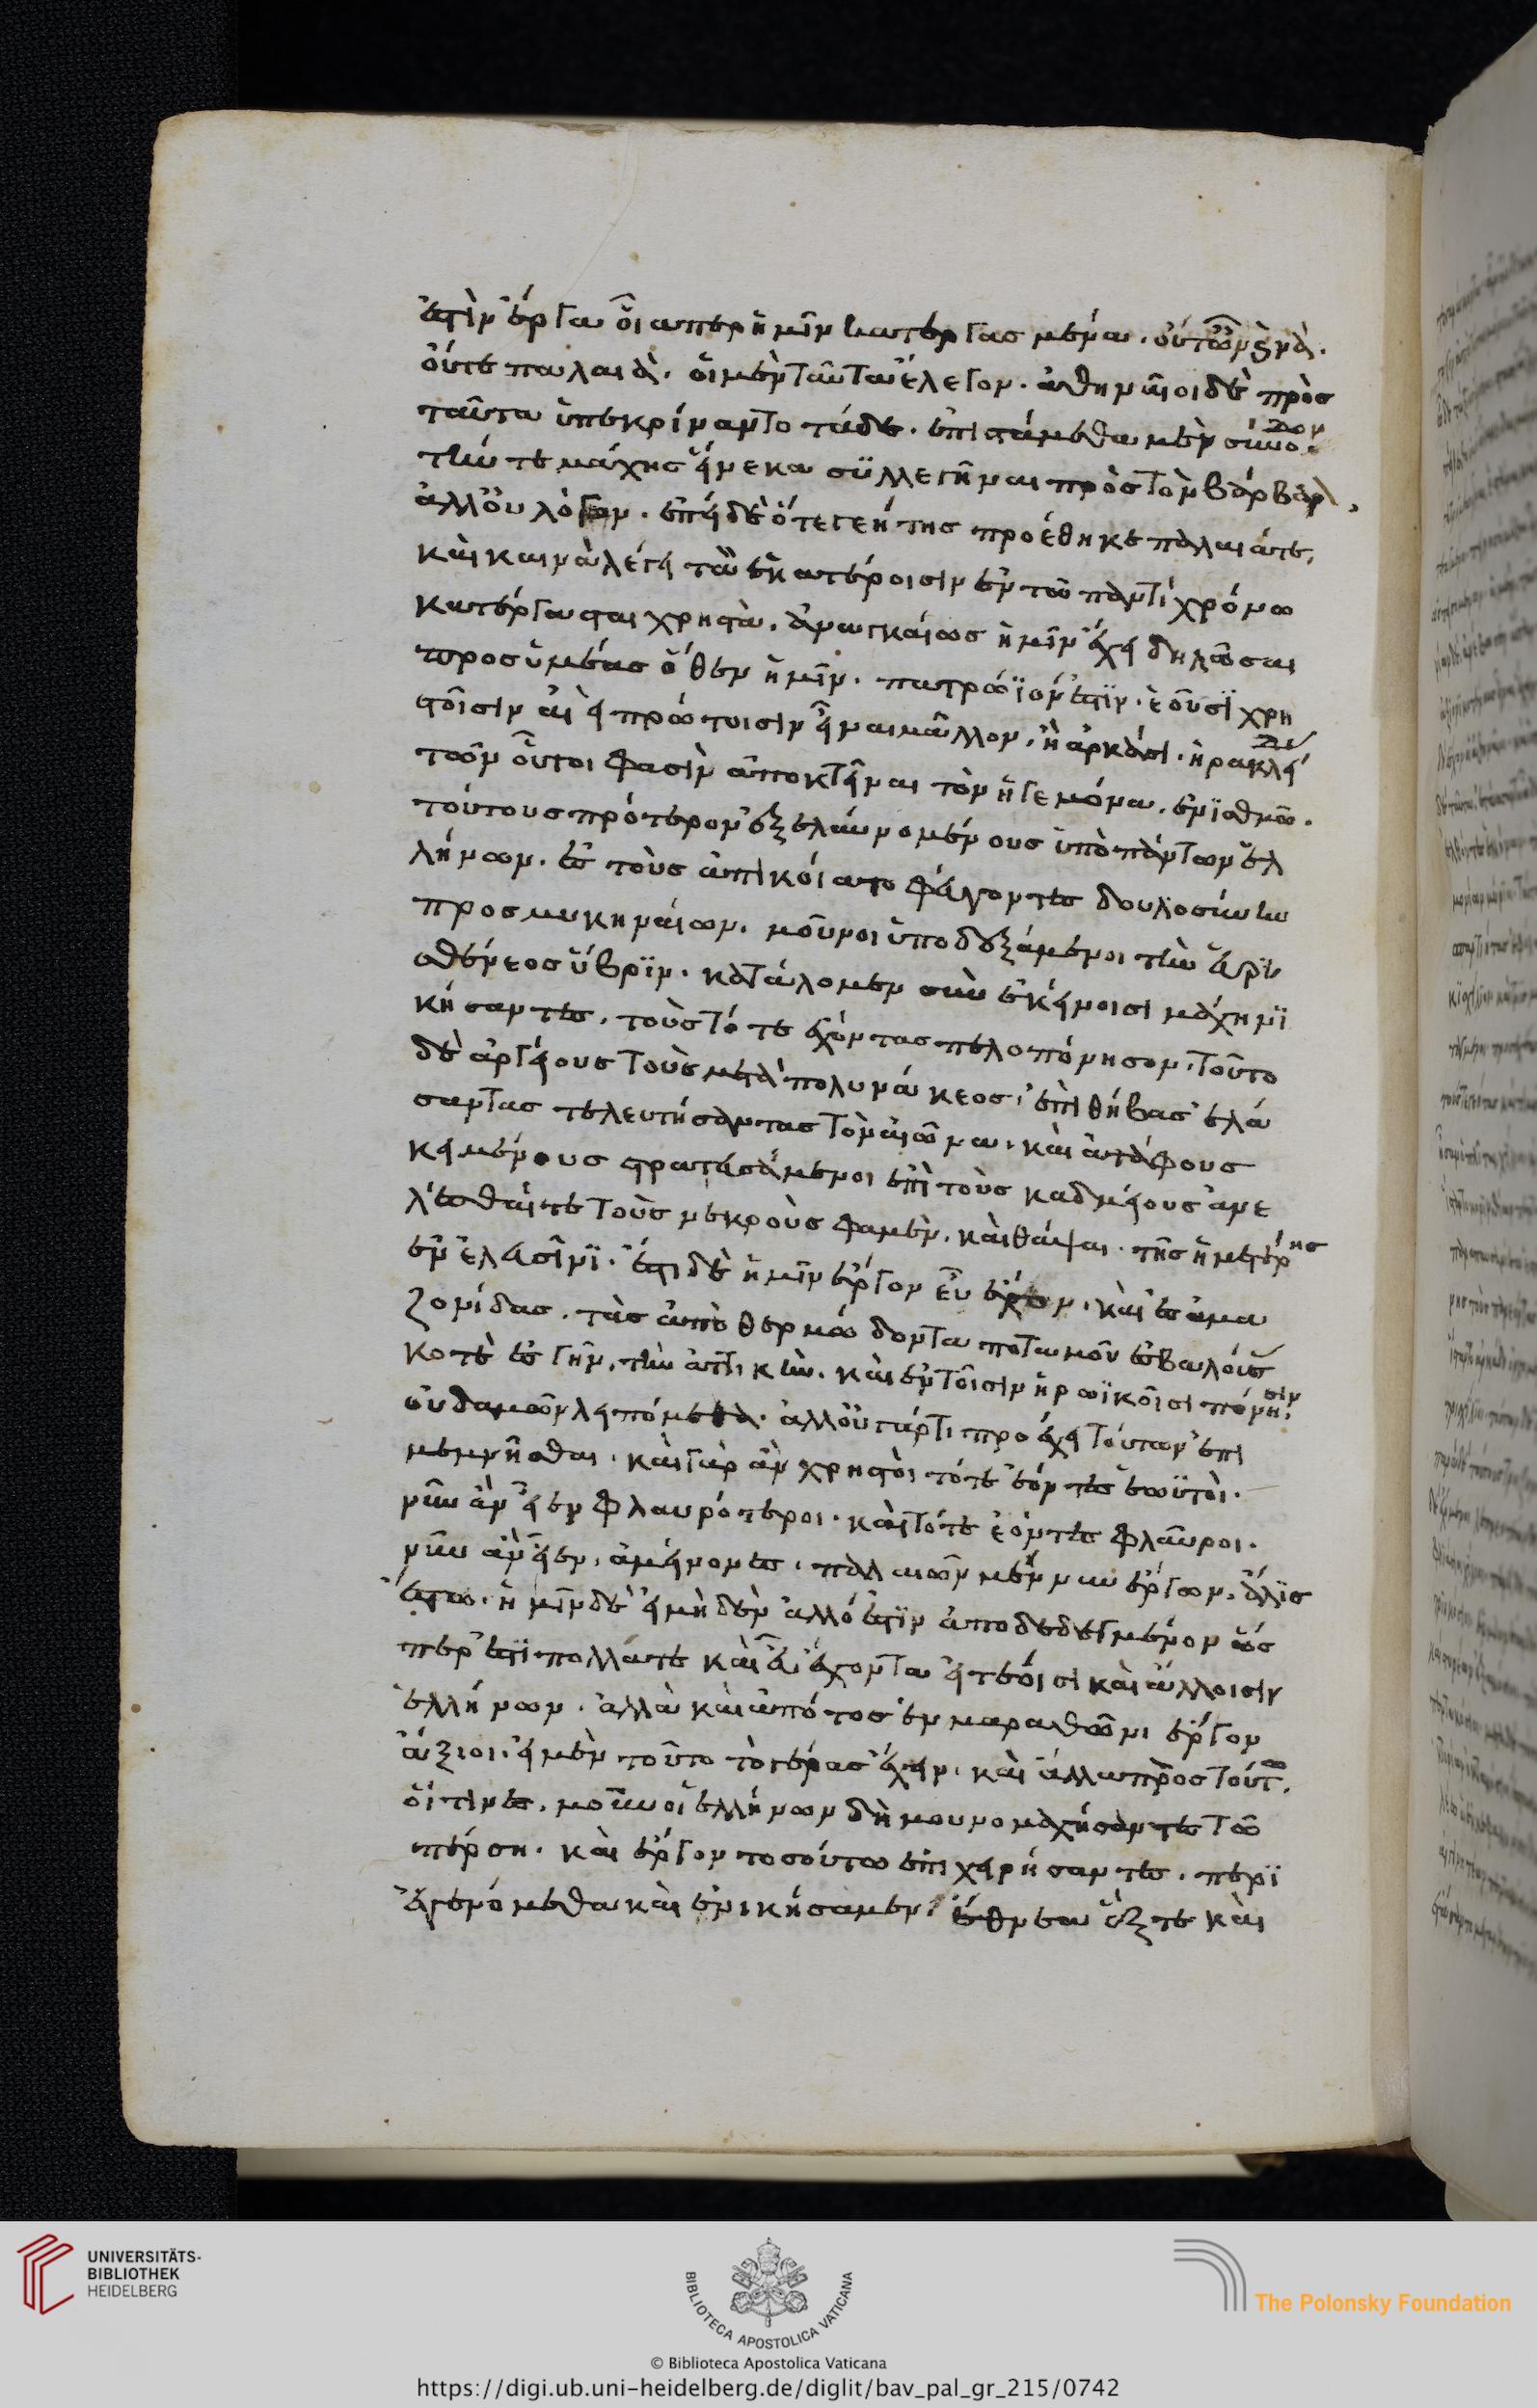 ἐστὶν ἔργα οἷάπερ ἡμῖν κατεργασμένα. οὔτ ὦν καινὰ.
οὔτε παλαιὰ. οἱ μὲν ταῦτα ἔλεγον. ἀθηναῖοι δὲ πρὸς
ταῦτα ὑπεκρίναντο τάδε. ἐπιστάμεθα μὲν σύνοδον
τήν τε μάχης εἵνεκα συλλεγῆναι πρὸς τὸν βάρβαρ
ἀλλ οὐ λόγων. ἐπεὶ δὲ ὁ τεγεήτης προέθηκε παλαιά τε,
καὶ καινὰ λέγει τὰ ἑκατέροισιν ἐν τῶ παντὶ χρόνω
κατέργασται χρηστὰ. ἀναγκαίως ἡμῖν ἔχει δηλῶσαι
προς ὑμέας ὅθεν ἡμῖν. πατρώϊόν ἐστϊν. ἐοῦσϊ χρη
στοῖσιν αἰεὶ πρώτοισιν εἶναι μᾶλλον, ἢ ἀρκάσι. ἡρακλεί
τῶν οὗτοι φασὶν ἀποκτεῖναι τὸν ἡγεμόνα. ἐν ϊσθμῶ.
τούτους πρότερον ἐξελαυνομένους ὑπὸ πάντων ἑλ
λήνων. ἐς τοὺς ἀπικοίατο φεύγοντες δουλοσύνην
προς μυκηναίων. μοῦνοι ὑποδεξάμενοι τὴν εὐρυ
σθένεος ὕβρϊν. κατείλομεν σὺν ἐκείνοισι μάχη νϊ
κήσαντες. τοὺς τότε ἔχοντας πελοπόνησον. τοῦτο
δὲ ἀργείους τοὺς μετὰ πολυνείκεος. ἐπὶ θήβας ἐλά
σαντας τελευτήσαντας τὸν αἰῶνα. καὶ ἀτάφους
κειμένους στρατευσάμενοι ἐπὶ τοὺς καδμείους ἀνε
λέσθαι τε τοὺς νεκροὺς φαμὲν. καὶ θάψαι. τῆς ἡμετέρης
ἐν ἐλευσῖνϊ. ἔστι δὲ ἡμῖν ἔργον εὖ ἔχον. καὶ ἐς ἀμα
ζονίδας. τὰς ἀπὸ θερμώδοντα ποταμοῦ ἐσβαλούσ
κοτὲ ἐς γῆν. τὴν ἀττικὴν. καὶ ἐν τοῖσιν ἡρωϊκοῖσι πόνηισιν.
οὐδαμῶν λειπόμεθα. ἀλλ οὐ γάρ τι προέχει τούτων ἐπι
μεμνῆσθαι. καὶ γὰρ ἂν χρηστοὶ τότε ἐόντες ἑωϋτοὶ.
νῦν ἂν εἶεν φλαυρότεροι. καὶ τότε ἐόντες φλαῦροι.
νῦν ἂν εἶεν. ἀμείνονες. παλαιῶν μέν νυν ἔργων. ἅλϊς
ἔστω. ἡμῖν δὲ εἰ μὴ δὲν ἄλλό ἐστϊν ἀποδεδεγμένον ὥσ
περ ἐστϊ πολλά τε καὶ εὖ ἔχοντα εἰ τεόισι καὶ ἄλλοισιν
ἑλλήνων. ἀλλὰ καὶ ἀπό τος ἐν μαραθῶνι ἔργον
ἄξιοι εἰμὲν τοῦτο τὸ γέρας ἔχειν. καὶ ἄλλα πρὸς τούτω.
οἵτινες. μοῦνοι ἑλλήνων δὴ μουνομαχήσαντες τῶ
πέρση. καὶ ἔργον τοσούτω ἐπιχειρήσαντες. περϊ
εγενόμεθα καὶ ἐνικήσαμεν. ἔθνεα ἕξ τε καὶ
UNIVERSITÄTS-
BIBLIOTHEK
HEIDELBERG
BIBLIOTECA APOSTOLICA VATICANA
The Polonsky Foundation
© Biblioteca Apostolica Vaticana
https://digi.ub.uni-heidelberg.de/diglit/bav_pal_gr_215/0742